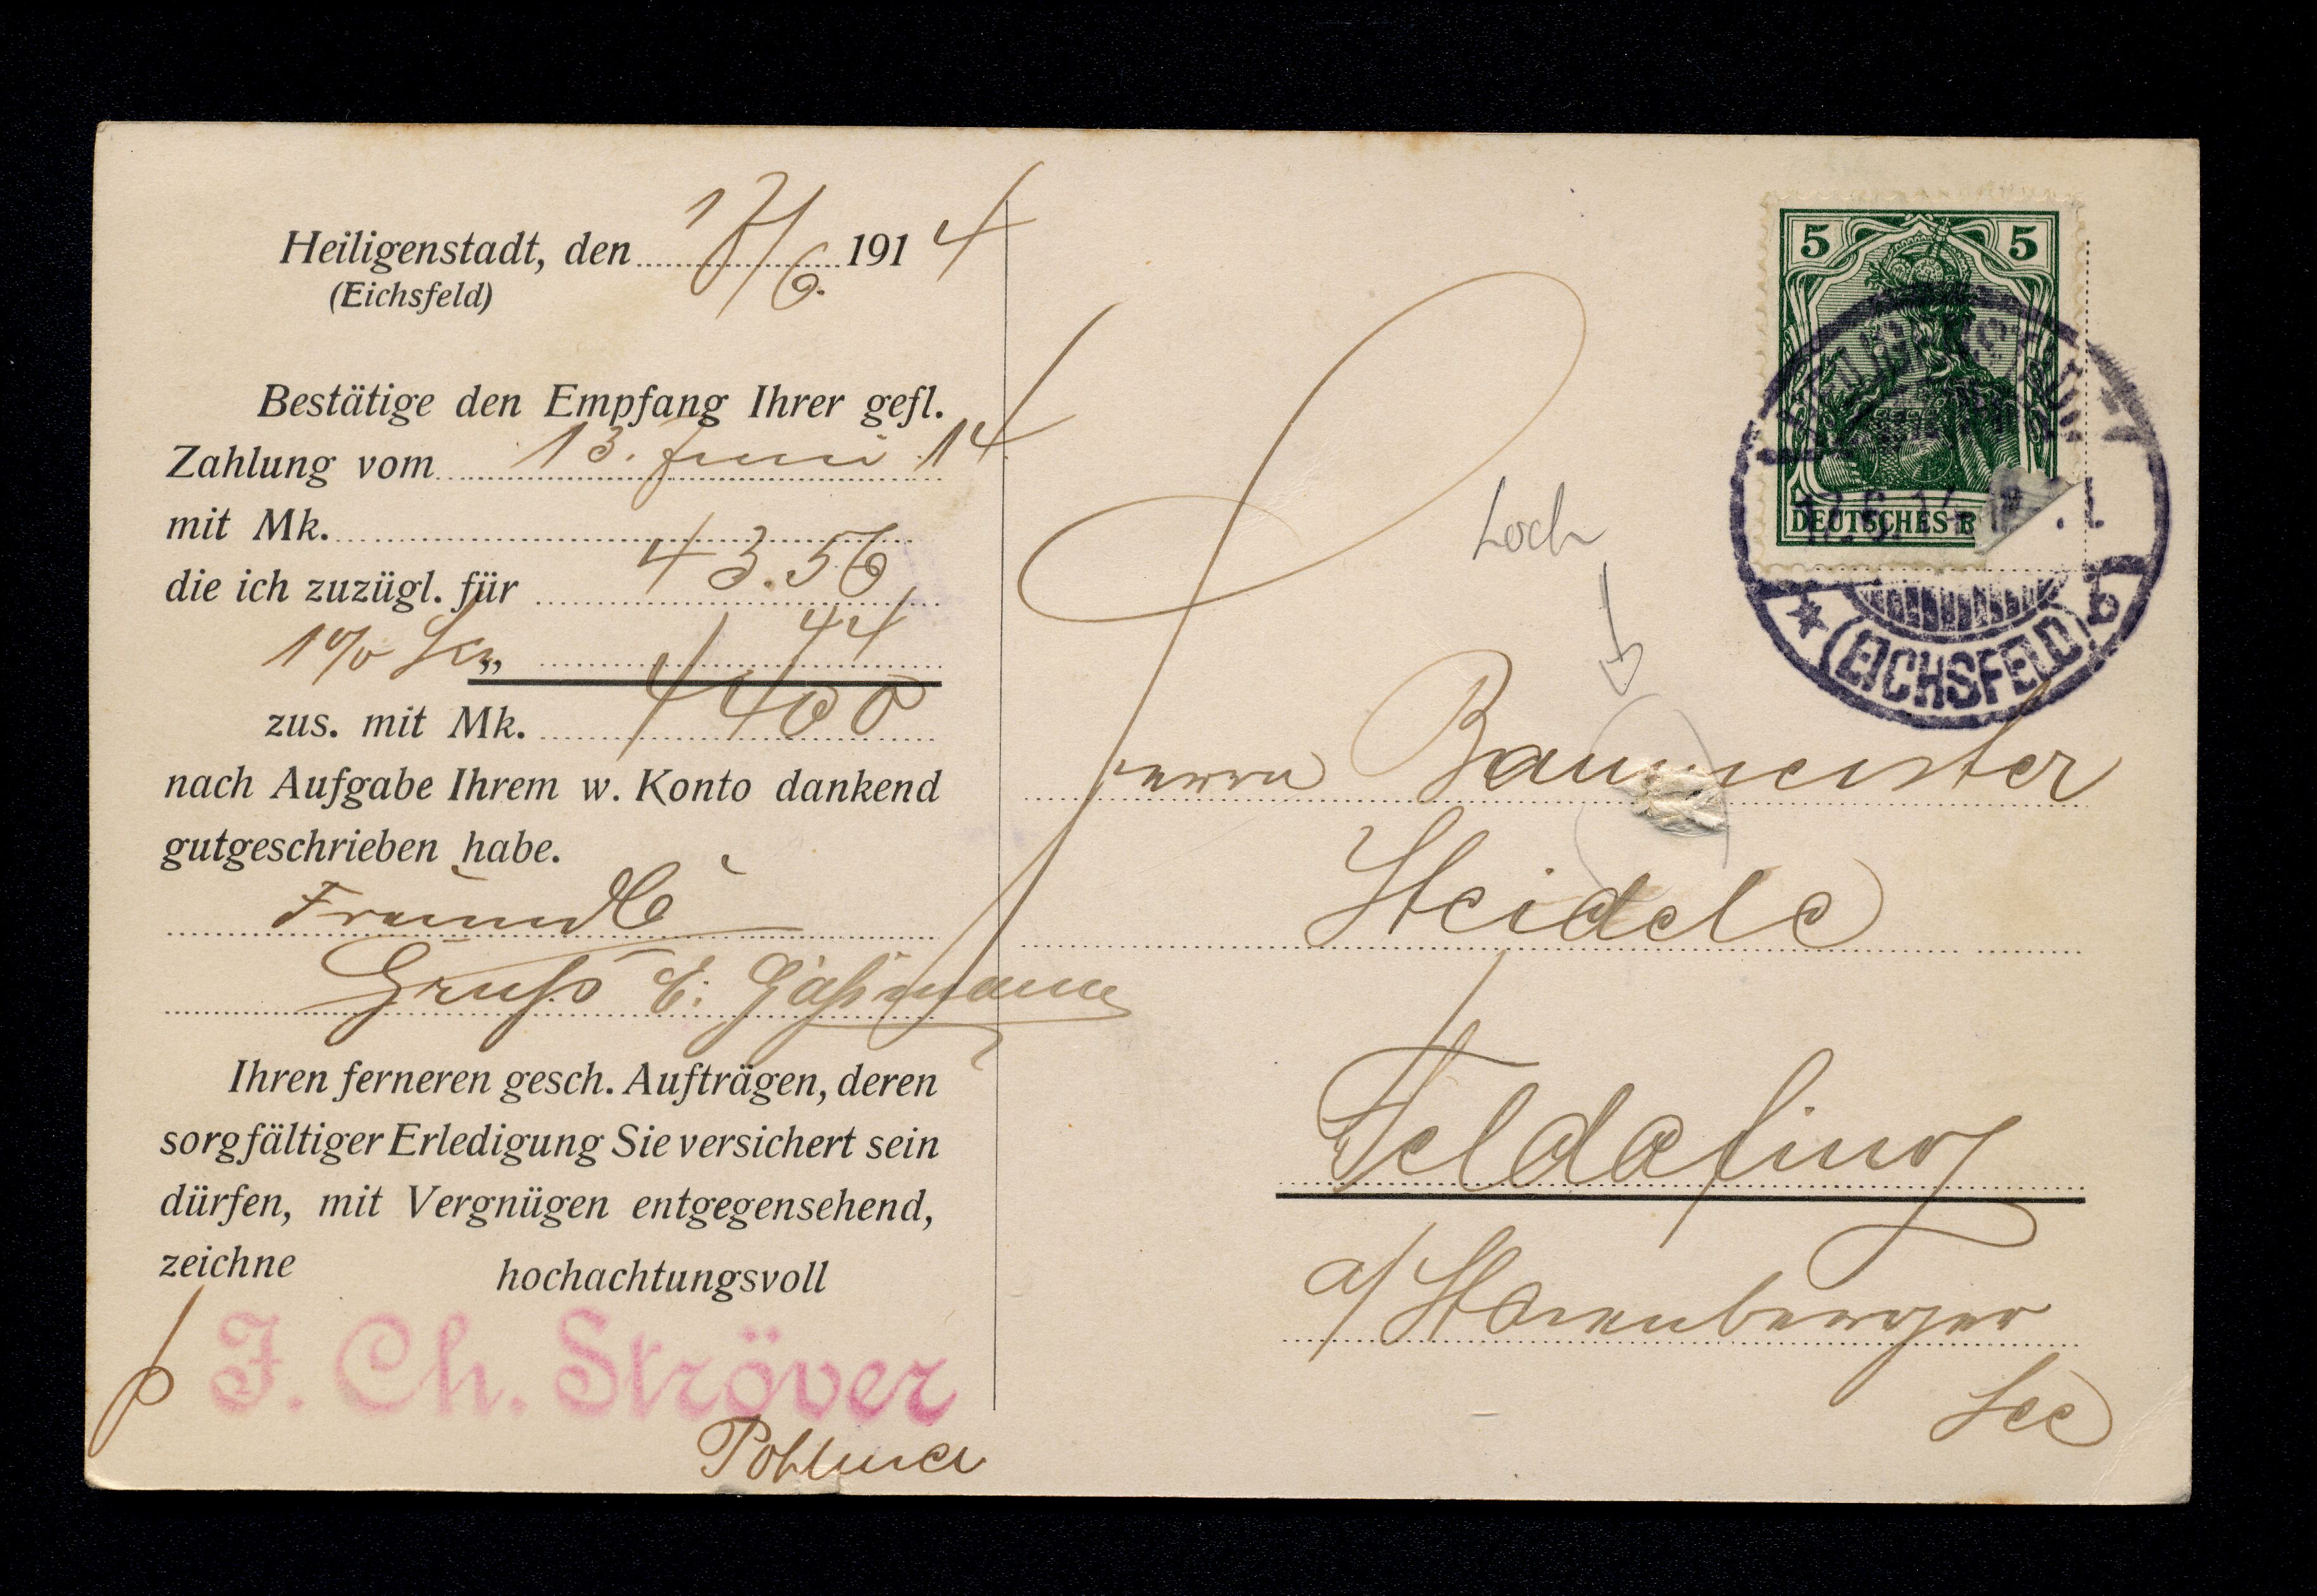 Heiligenstadt, den 17/6. 1914
(Eichsfeld)
Bestätige den Empfang Ihrer gefl.
Zahlung vom 13. Juni 14
mit Mk. 43.56
die ich zuzügl. für
1% Sk. „ 44
zus. mit Mk. 4400
nach Aufgabe Ihrem w. Konto dankend
gutgeschrieben habe.
Freundl
Gruß E. Gaßmann
Ihren ferneren gesch. Aufträgen, deren
sorgfältiger Erledigung Sie versichert sein
dürfen, mit Vergnügen entgegensehend,
zeichne hochachtungsvoll
J. Ch. Ströver
5 5
DEUTSCHES R
(EICHSFELD)
b
Loch
Herrn Baumeister
Steidele
Feldafing
a/ Starenberger
See